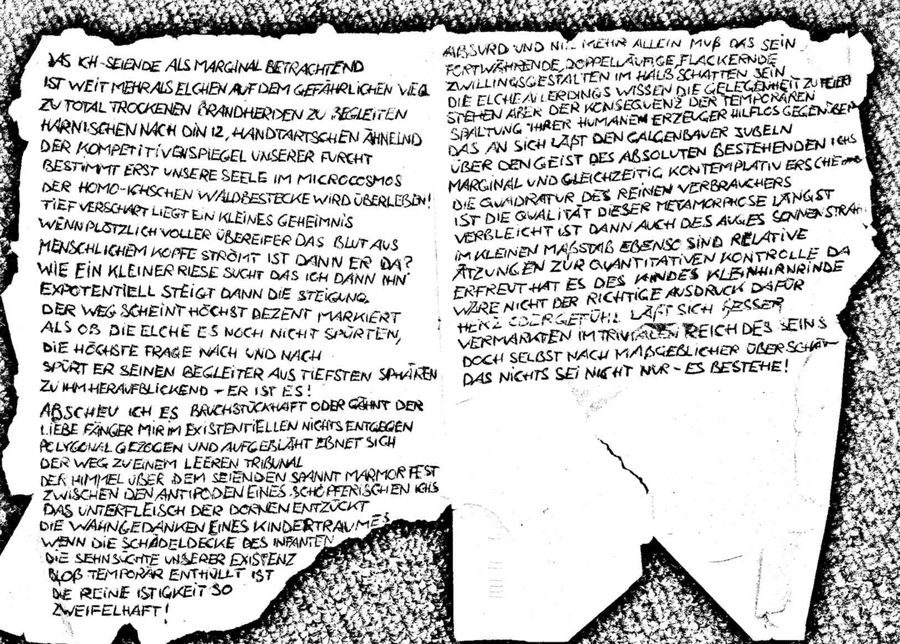 DAS ICH-SEIENDE ALS MARGINAL BETRACHTEND
IST WEIT MEHR ALS ELCHEN AUF DEM GEFÄHRLICHEN WEG
ZU TOTAL TROCKENEN BRANDHERDEN ZU BEGLEITEN
HARNISCHEN NACH DIN 12, HANDTARTSCHEN ÄHNELND
DER KOMPETITIVENSPIEGEL UNSERER FURCHT
BESTIMMT ERST UNSERE SEELE IM MICROCOSMOS
DER HOMO-ICHSCHEN WALDBESTECKE WIRD ÜBERLEBEN!
TIEF VERSCHARRT LIEGT EIN KLEINES GEHEIMNIS
WENN PLÖTZLICH VOLLER ÜBEREIFER DAS BLUT AUS
MENSCHLICHEM KOPFE STRÖMT IST DANN ER DA?
WIE EIN KLEINER RIESE SUCHT DAS ICH DANN IHN
EXPOTENTIELL STEIGT DANN DIE STEIGUNG.
DER WEG SCHEINT HÖCHST DEZENT MARKIERT
ALS OB DIE ELCHE ES NOCH NICHT SPÜRTEN,
DIE HÖCHSTE FRAGE NACH UND NACH
SPÜRT ER SEINEN BEGLEITER AUS TIEFSTEN SPHÄREN
ZU IHM HERAUFBLICKEND - ER IST ES!
ABSCHEU ICH ES BRUCHSTÜCKHAFT ODER GÄHNT DER
LIEBE FÄNGER MIR IM EXISTENTIELLEN NICHTS ENTGEGEN
POLYGONAL GEZOGEN UND AUFGEBLÄHT EBNET SICH
DER WEG ZU EINEM LEEREN TRIBUNAL
DER HIMMEL ÜBER DEM SEIENDEN SPANNT MARMORFEST
ZWISCHEN DEN ANTIPODEN EINES SCHÖPFERISCHEN ICHS
DAS UNTERFLEISCH DER DORNEN ENTZÜCKT
DIE WAHNGEDANKEN EINES KINDERTRAUMES
WENN DIE SCHÄDELDECKE DES INFANTEN
DIE SEHNSÜCHTE UNSERER EXISTENZ
BLOß TEMPORÄR ENTHÜLLT IST
DIE REINE ISTIGKEIT SO
ZWEIFELHAFT!
ABSURD UND NIE MEHR ALLEIN MUß DAS SEIN
FORTWÄHRENDE, DOPPELLÄUFIGE, FLACKERNDE
ZWILLINGSGESTALTEN IM HALBSCHATTEN SEIN
DIE ELCHE ALLERDINGS WISSEN DIE GELEGENHEIT ZU FEIERN
STEHEN ABER DER KONSEQUENZ DER TEMPORÄREN
SPALTUNG IHRER HUMANEN ERZEUGER HILFLOS GEGENÜBER
DAS AN SICH LÄßT DEN GALGENBAUER JUBELN
ÜBER DEN GEIST DES ABSOLUTEN BESTEHENDEN ICHS
MARGINAL UND GLEICHZEITIG KONTEMPLATIV
DIE QUADRATUR DES REINEN VERBRAUCHERS
IST DIE QUALITÄT DIESER METAMORPHOSE LÄNGST
VERBLEICHT IST DANN AUCH DES AUGES
IM KLEINEN MAßSTAB EBENSO SIND RELATIVE
ÄTZUNGEN ZUR QUANTITATIVEN KONTROLLE DA
ERFREUT HAT ES DES KINDES KLEINHIRNRINDE
WÄRE NICHT DER RICHTIGE AUSDRUCK DAFÜR
HERZ ODER GEFÜHL LÄßT SICH BESSER
VERMARKTEN IM TRIVIALEN REICH DES SEINS
DOCH SELBST NACH MAßGEBLICHER
DAS NICHTS SEI NICHT NUR - ES BESTEHE!